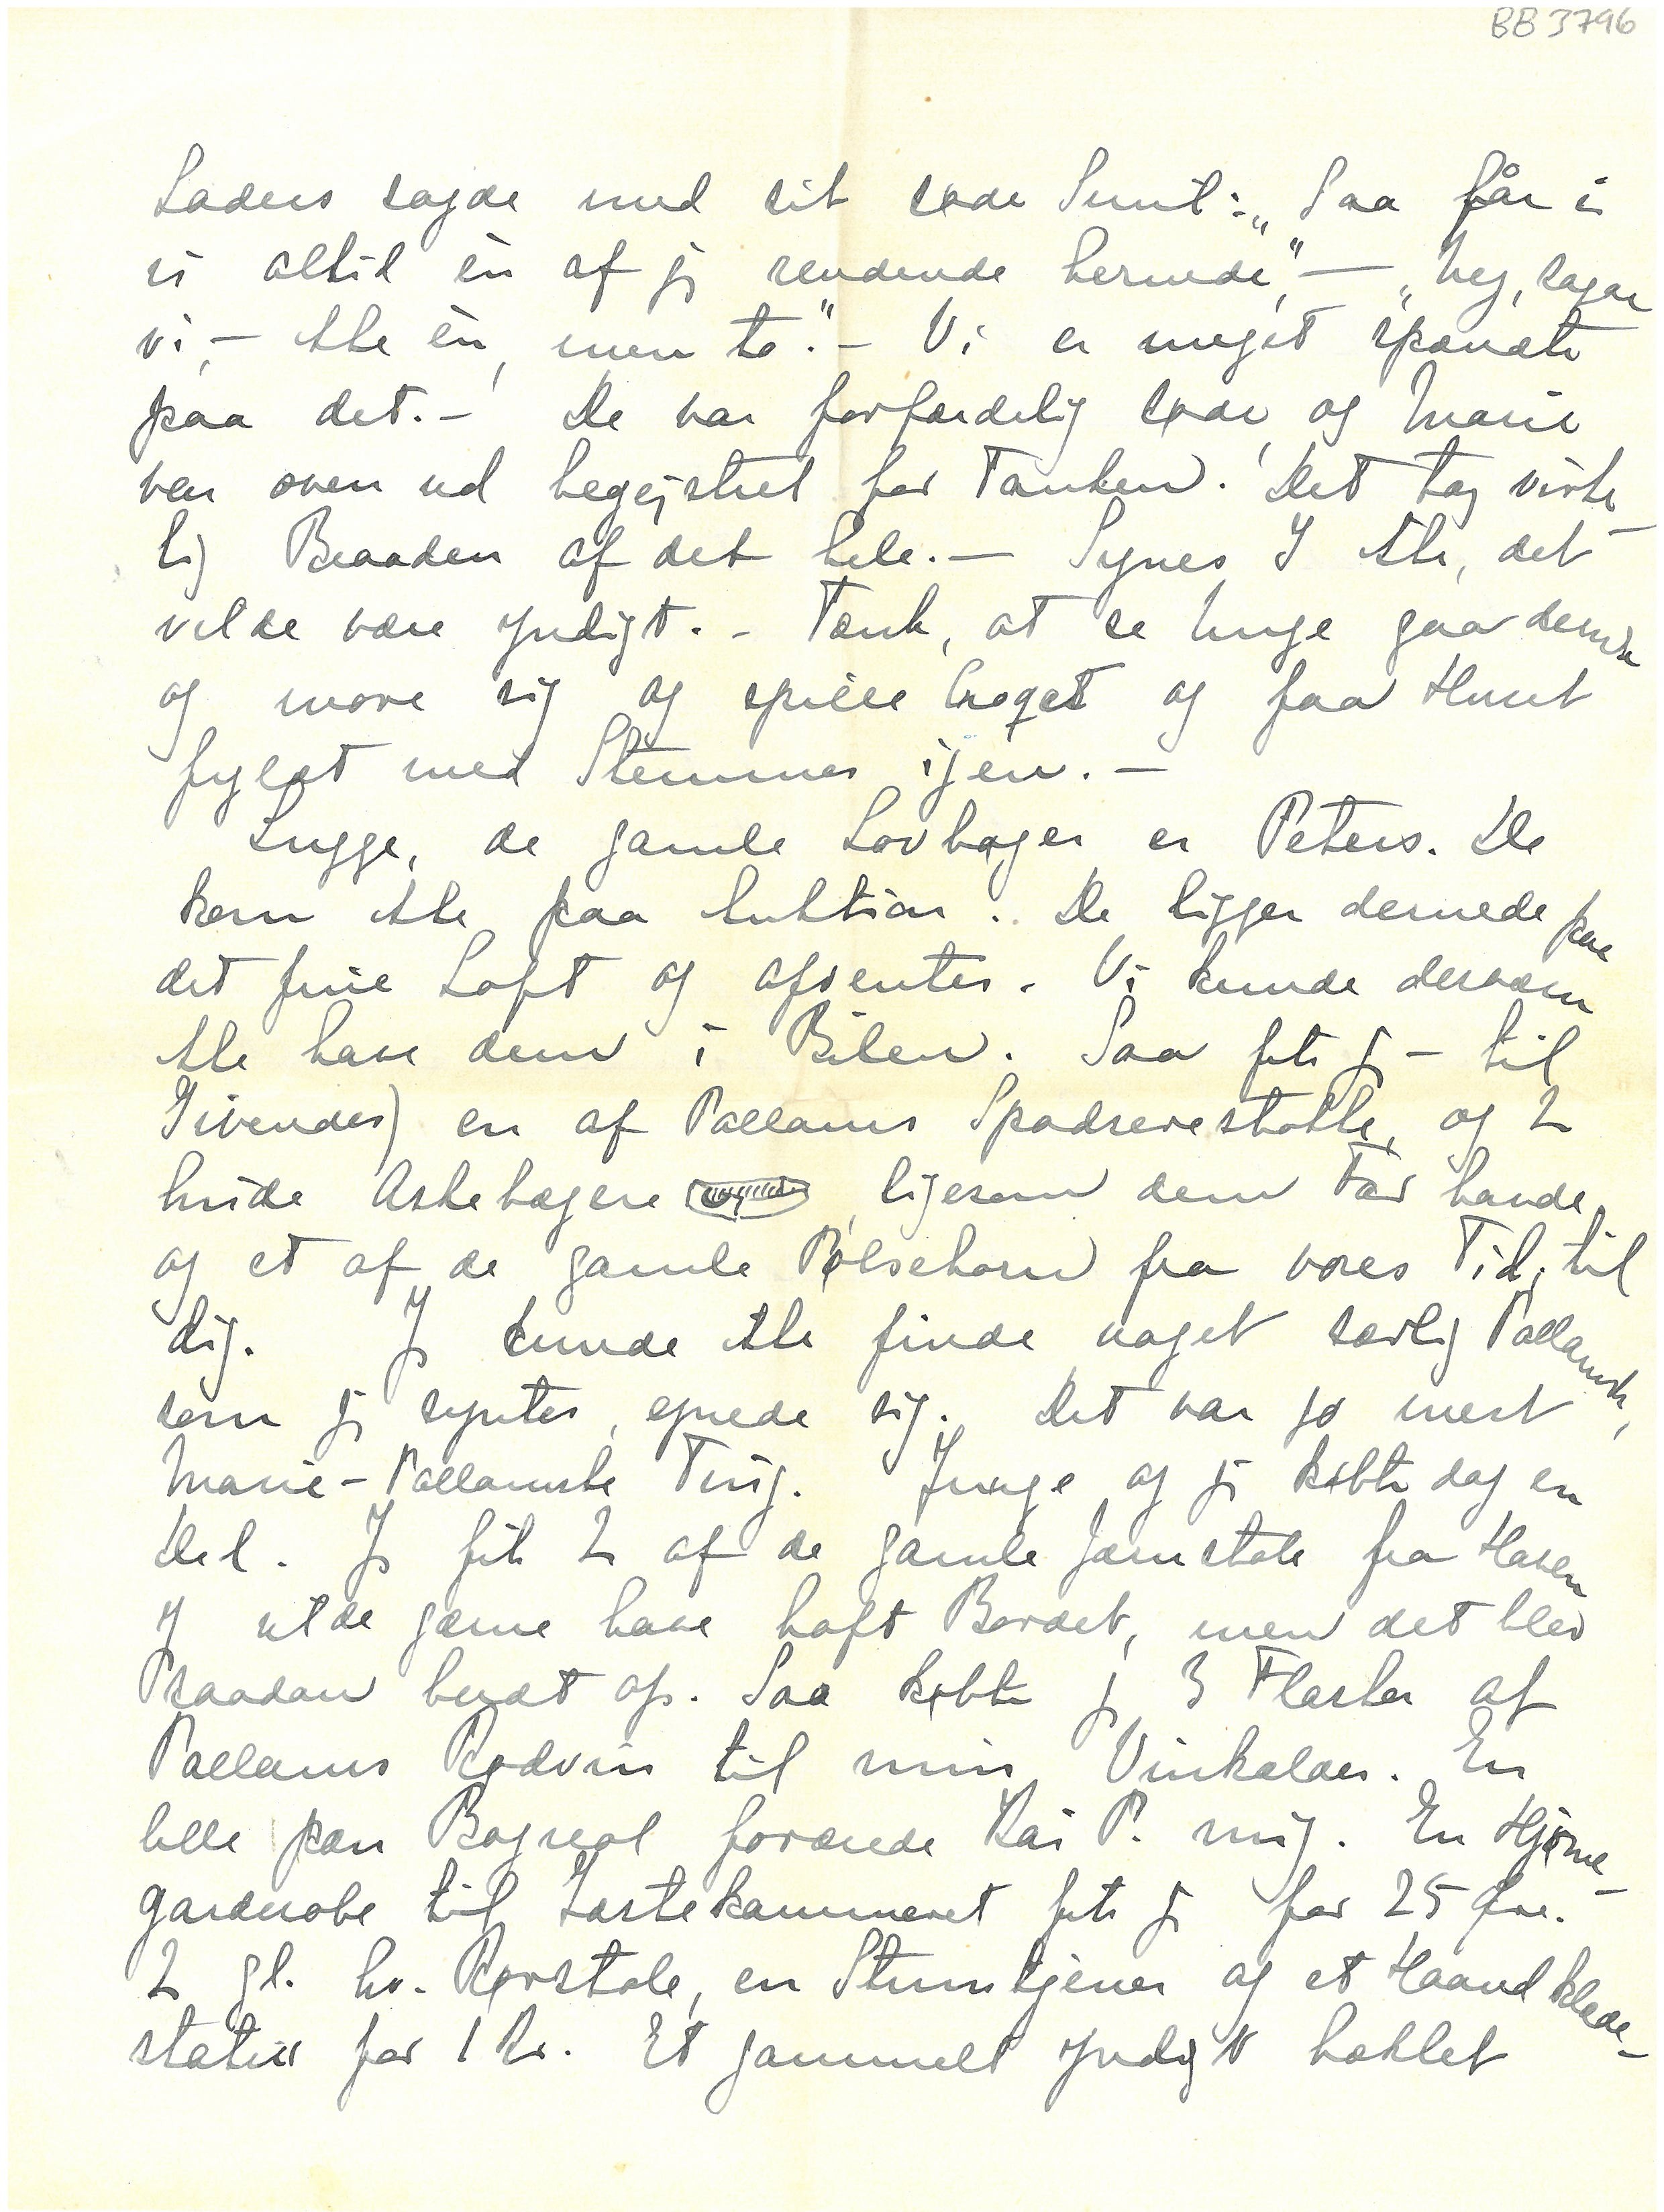 BB 3796
Laders sagde med sit søde Smil: "Saa får i
vi altid èn af jj rendende hernede," — "Nej, sagde
vi, — ikke èn, men to." — Vi er meget spændte
paa det. — De var forfærdelig søde, og Marie
var oven ud begejstret for Tanken. Det tog virke-
lig Braaden af det hele. — Synes I ikke, det
vilde være yndigt. - Tænk, at se Unge gaa dernede
og more sig og spille Croqet og faa Huset
fyldt med Stemmer igen. —
Lugge, de gamle Lovbøger er Peters. De
kom ikke paa Auktion. De ligger dernede paa
det fine Loft og afventer. Vi kunde desværre
ikke have dem i Bilen. Saa fik jeg - til
Givendes) en af Pallams Spadserestokke, og 2
hvide Askebægere, ligesom dem Far havde,
og et af de gamle Pølsehorn fra vores Tid, til
dig. Jeg kunde ikke finde noget særlig Pallamsk,
som jeg syntes, egnede sig. Det var jo mest
Marie-Pallamske Ting. Junge og jeg købte dog en
Del. Jeg fik 2 af de gamle Jærnstole fra Haven
Jeg vilde gærne have haft Bordet, men det blev
saadan budt op. Saa købte jeg 3 Flasker af
Pallams Rødvin til min Vinkælder. En
lille pæn Bogreol forærede Kai P. mig. En Hjørne-
garderobe til Gæstekammeret fik jeg for 25 Øre.
2 gl. hv. Rørstole, en Stumtjener og et Haandklæde-
stativ for 1 Kr. Et gammelt yndigt hæklet